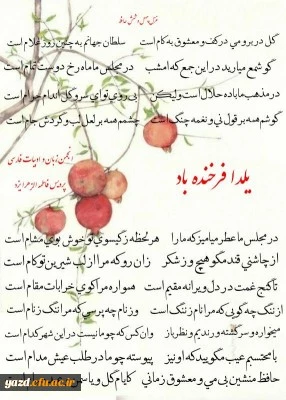 غزل چهل و ششم حافظ
گل در بر و می در کف و معشوق به کام است سلطان جهانم به چنین روز غلام است
گو شمع میارید در این جمع که امشب در مجلس ما ماه رخ دوست تمام است
در مذهب ما باده حلال است ولیکن بی روی تو ای سرو گل اندام حرام است
گوشم همه بر قول نی و نغمه چنگ است چشمم همه بر لعل لب و گردش جام است
انجمن زبان و ادبیات فارسی
پردیس فاطمه الزهرا یزد
یلدا فرخنده باد
در مجلس ما عطر میامیز که ما را هر لحظه ز گیسوی تو خوش بوی مشام است
از چاشنی قند مگو هیچ و ز شکر زان رو که مرا از لب شیرین تو کام است
تا گنج غمت در دل ویرانه مقیم است همواره مرا کوی خرابات مقام است
از ننگ چه گویی که مرا نام ز ننگ است وز نام چه پرسی که مرا ننگ ز نام است
میخواره و سرگشته و رندیم و نظرباز وان کس که چو ما نیست در این شهر کدام است
با محتسبم عیب مگویید که او نیز پیوسته چو ما در طلب عیش مدام است
حافظ منشین بی می و معشوق زمانی کایام گل و یاسمن و عید صیام است
yazd.cfu.ac.ir